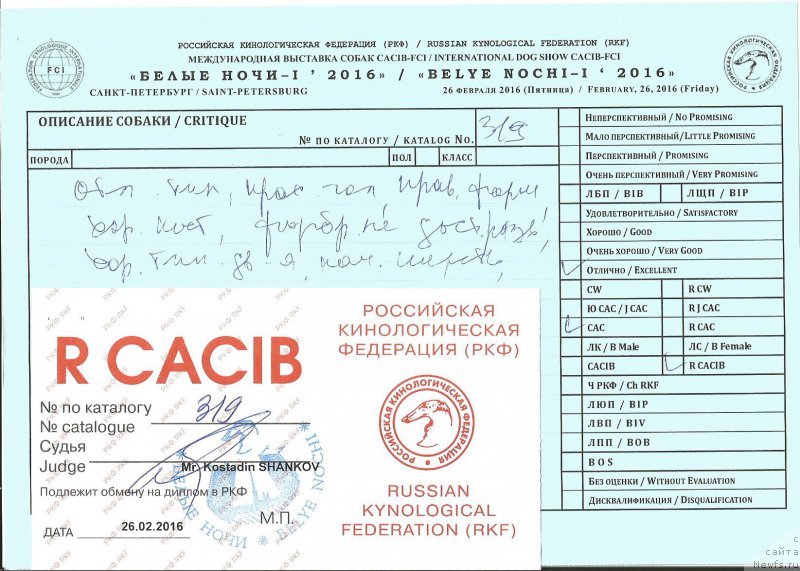 РОССИЙСКАЯ КИНОЛОГИЧЕСКАЯ ФЕДЕРАЦИЯ (РКФ) / RUSSIAN KYNOLOGICAL FEDERATION (RKF)
МЕЖДУНАРОДНАЯ ВЫСТАВКА СОБАК CACIB-FCI / INTERNATIONAL DOG SHOW CACIB-FCI
«БЕЛЫЕ НОЧИ-I ' 2016» / «BELYE NOCHI-I ‘ 2016»
САНКТ-ПЕТЕРБУРГ / SAINT-PETERSBURG
26 ФЕВРАЛЯ 2016 (Пятница) / February, 26, 2016 (Friday)
FCI
ОПИСАНИЕ СОБАКИ / CRITIQUE
№ ПО КАТАЛОГУ / KATALOG No. 319
ПОРОДА ПОЛ КЛАСС
Непрерспективный / No Promising
Мало перспективный/Little Promising
Перспективный / Promising
Очень перспективный / Very Promising
ЛБП / BIB ЛЩП / BIP
Удовлетворительно / Satisfactory
Хорошо / Good
Очень хорошо / Very Good
Отлично / Excellent
CW R CW
Ю САС / J CAC R J CAC
CAC R CAC
ЛК / B Male ЛС / B Female
CACIB R CACIB
Ч РКФ / Ch RKF
ЛЮП / BIP
ЛВП / BIV
ЛПП / BOB
BOS
Без оценки / Without Evaluation
Дисквалификация / Disqualification
R CACIB
№ по каталогу 319
№ catalogue
Судья
Judge Mr. Kostadin SHANKOV
Подлежит обмену на диплом в РКФ
ДАТА 26.02.2016 М.П.
РОССИЙСКАЯ
КИНОЛОГИЧЕСКАЯ
ФЕДЕРАЦИЯ (РКФ)
РОССИЙСКАЯ КИНОЛОГИЧЕСКАЯ ФЕДЕРАЦИЯ
RUSSIAN
KYNOLOGICAL
FEDERATION (RKF)
с
сайта
Newfs.ru